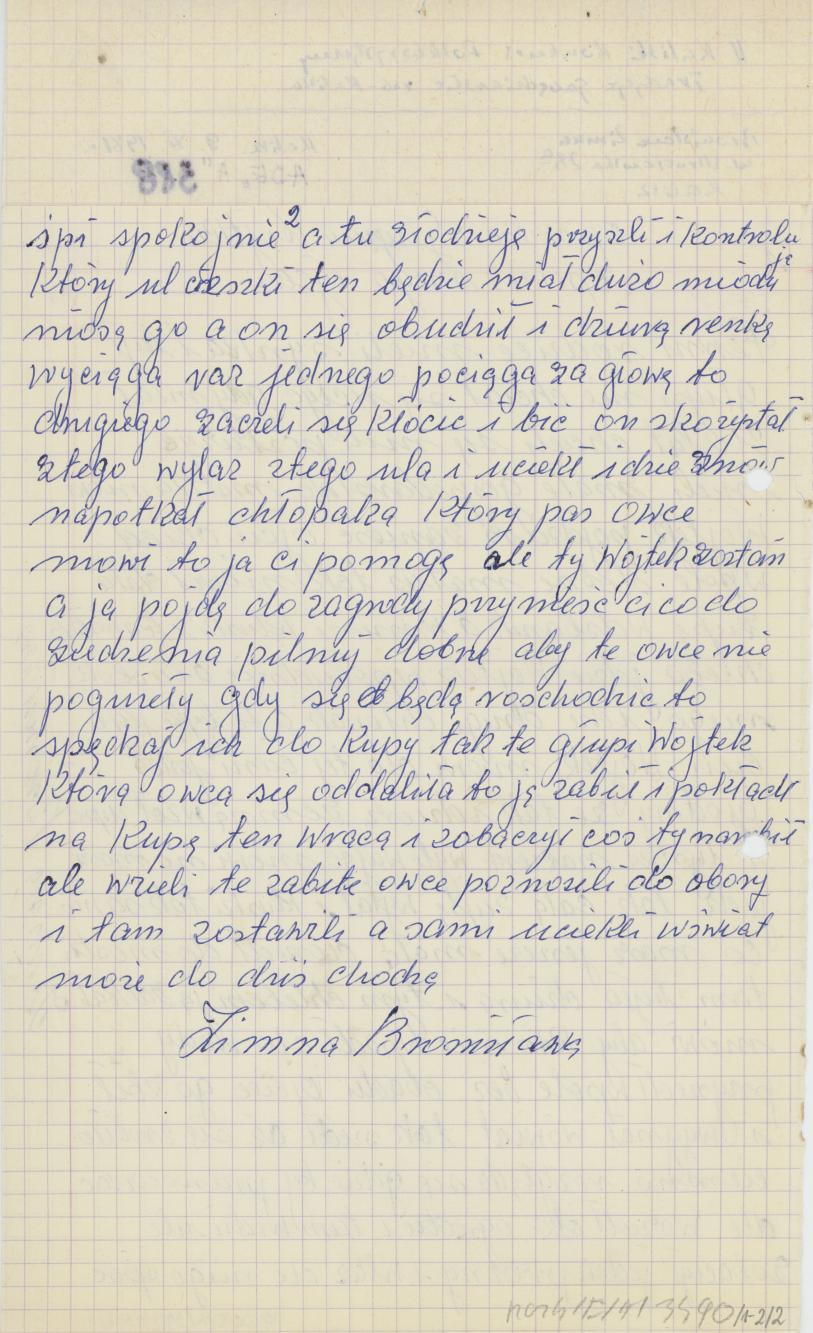 2
śpi spokojnie a tu złodzieję przyszli i kontrolu
je
Który ul cieszki ten będzie miał dużo miodu
niosą go a on się obudził i dziurą renką
wyciąga raz jednego pociąga za głową to
drugiego zaczeli się kłócic i bić on skożystał
ztego wylaz ztego ula i uciekł idzie znów
napotkał chłopaka Który pas owce
mowi to ja ci pomogę ale ty Wojtek zostań
a ja pojdę do zagrody przyniesc ci co do
ziedzenia pilnuj dobrze aby te owce nie
pogineły gdy się będą roschodzic to
spędzaj ich do Kupy tak te głupi Wojtek
Która owca się oddaliła to ją zabił i pokładł
na Kupę ten wraca i zobaczył coś ty narobił
ale wzieli te zabite owce poznosili do obory
i tam zostawili a sami uciekli wświat
może do dziś chodzą
Zimna Bronisława
3490/1-2/2